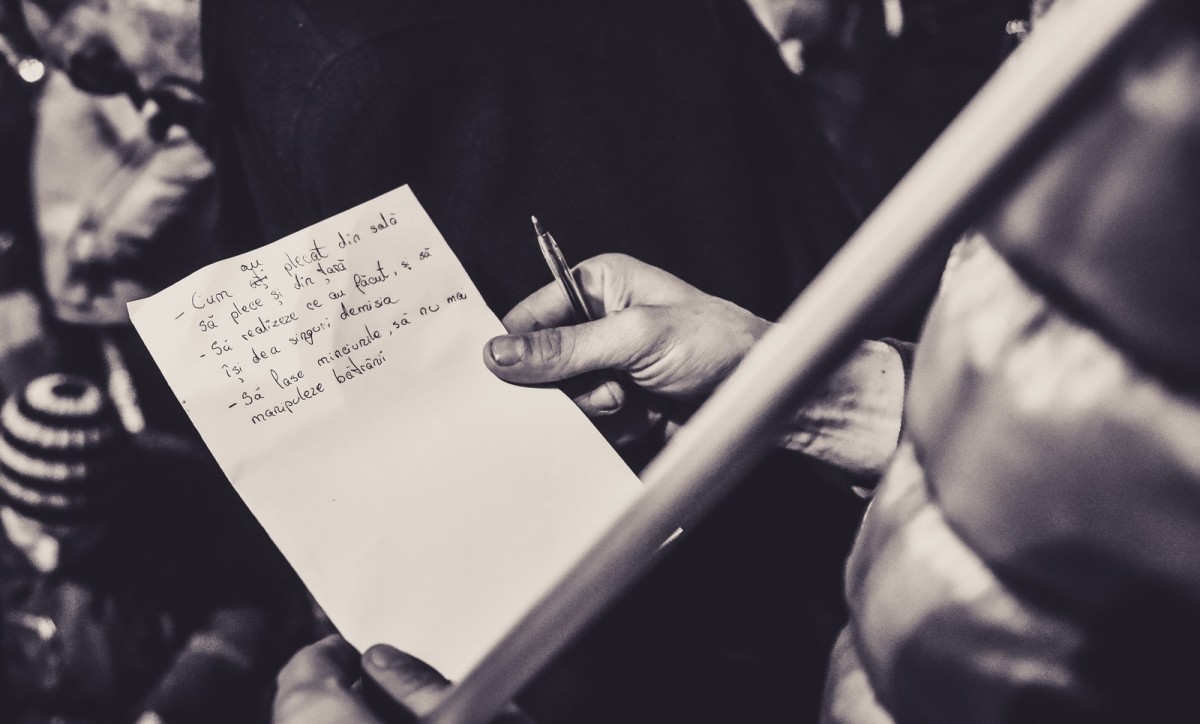 au
- Cum plecat din sală
să plece și din țară
- Să realizeze ce au făcut, și să
își dea singuri demisia
- Să lase minciunile, să nu mai
manipuleze bătrânii